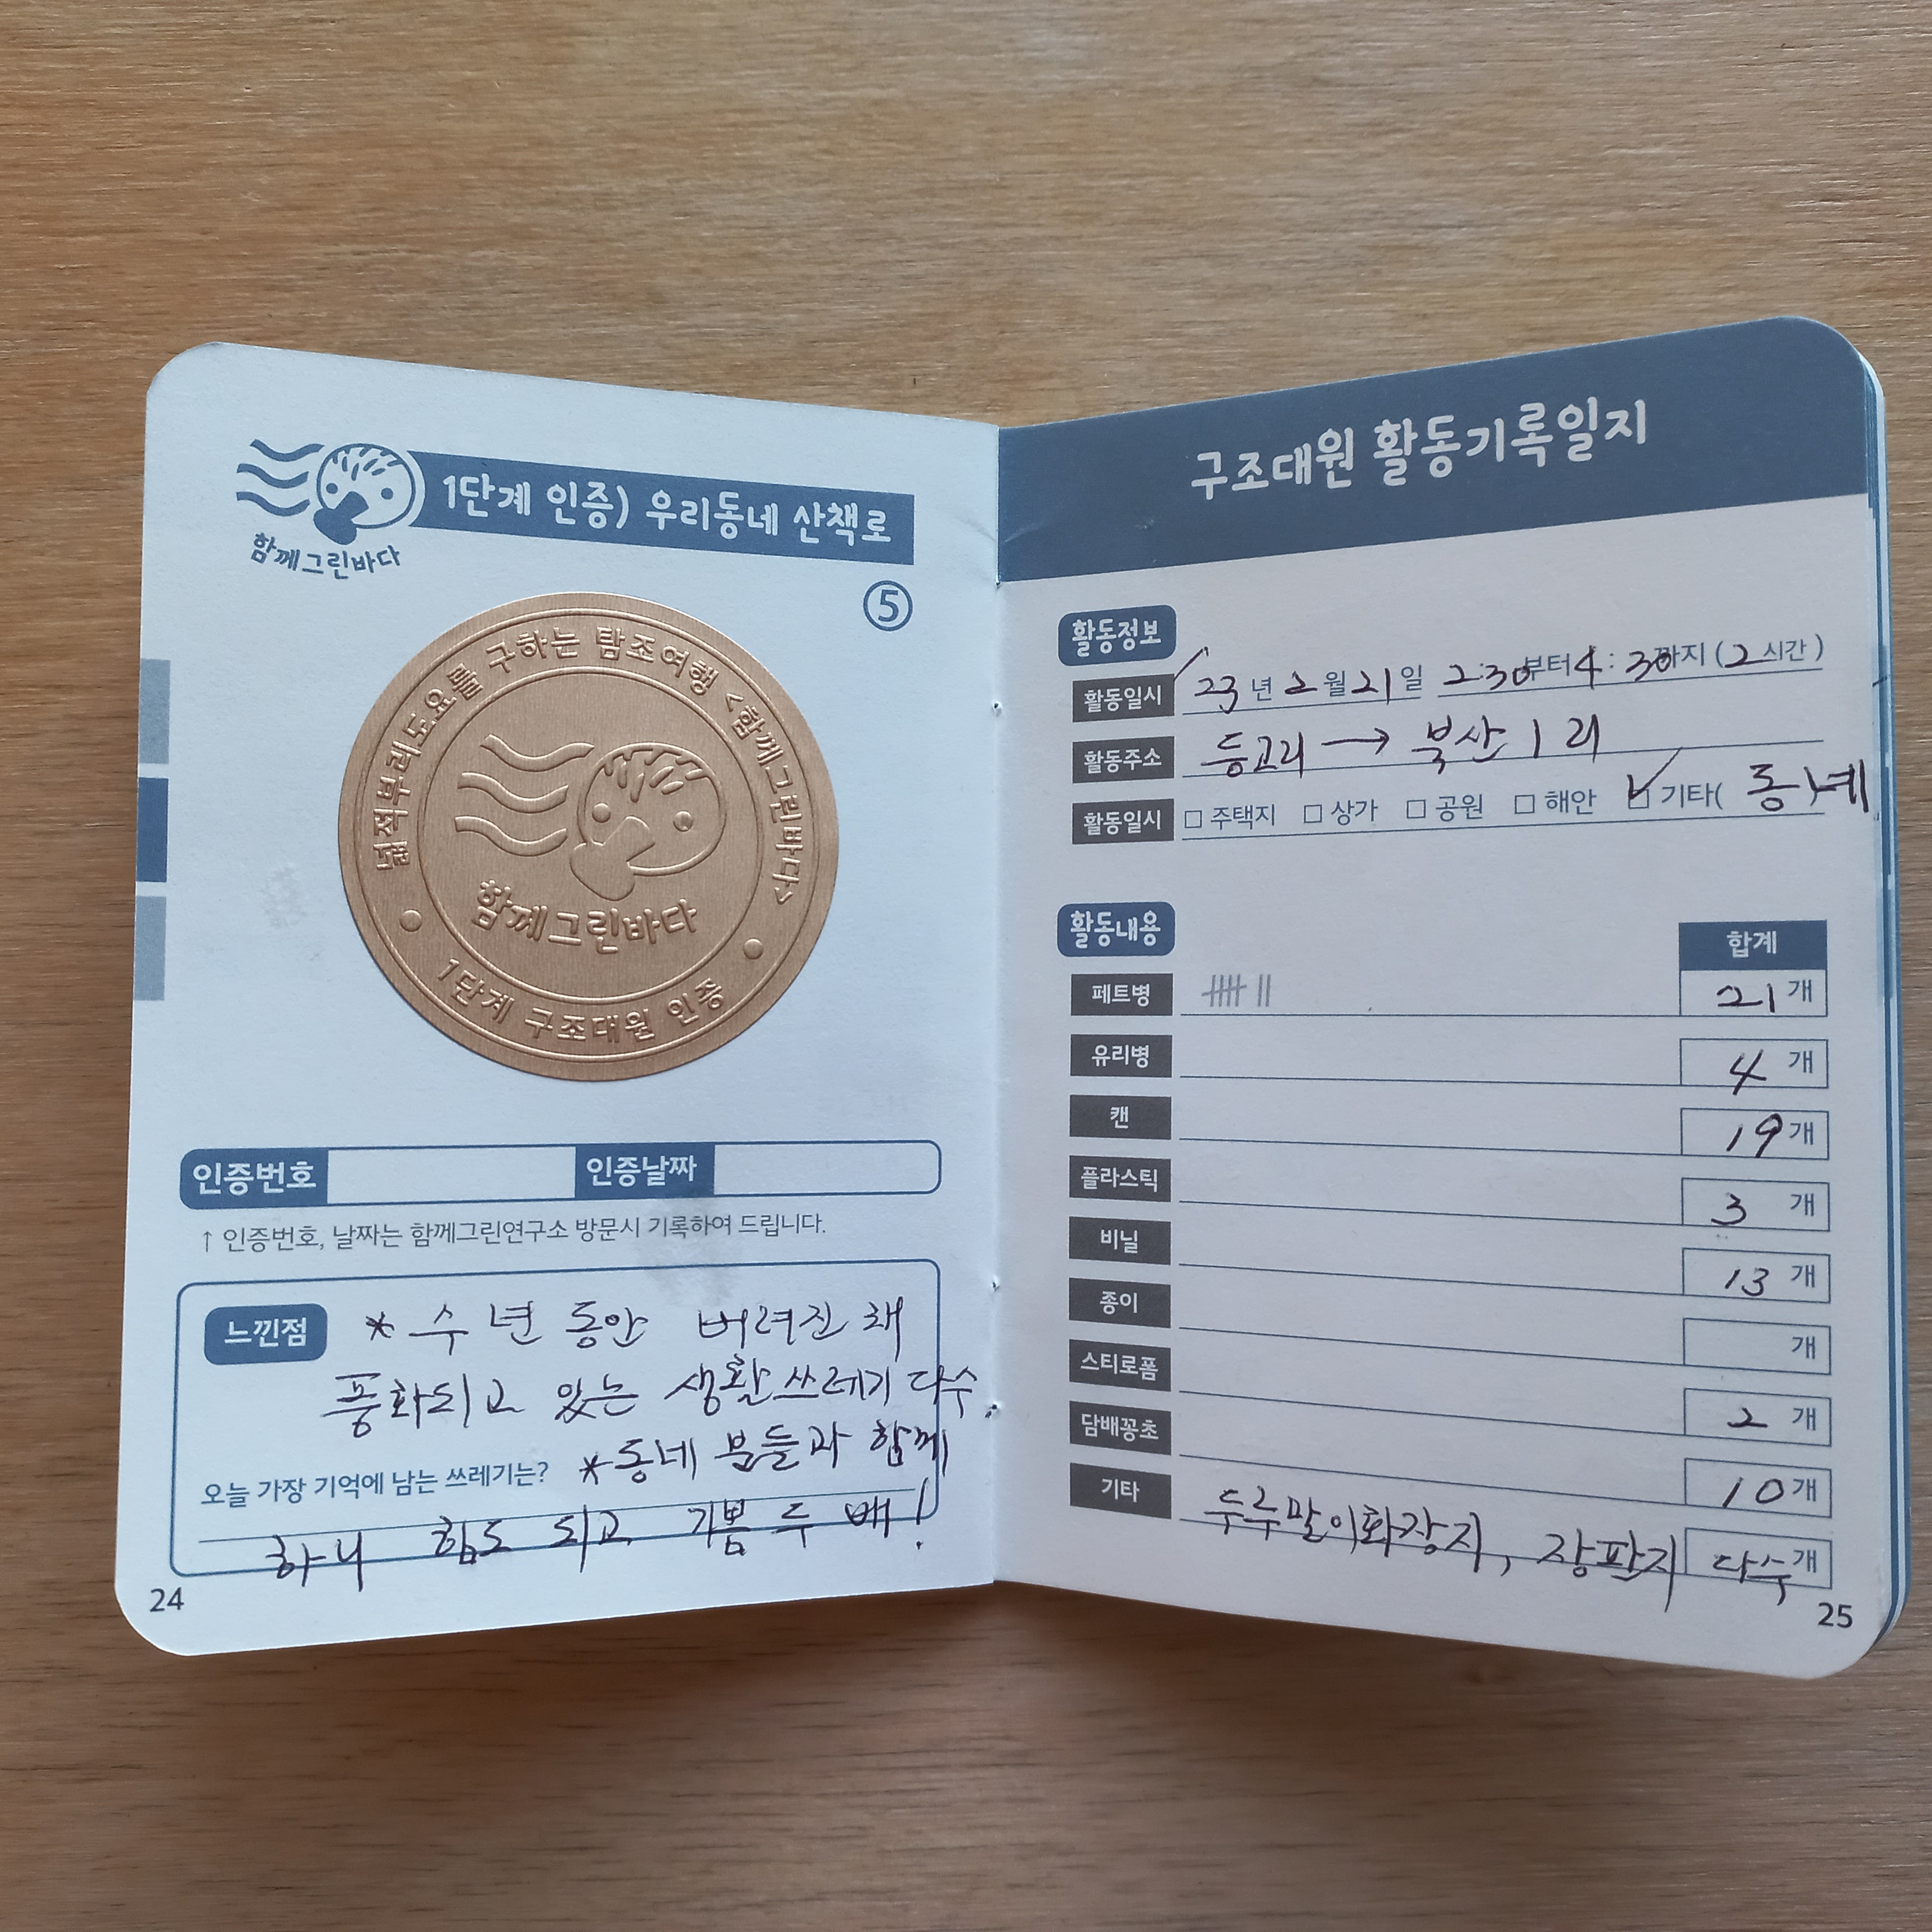 함께그린바다
1단계 인증) 우리동네 산책로
⑤
넓적부리도요를 구하는 탐조여행 <함께그린바다>
함께그린바다
1단계 구조대원 인증
인증번호 인증날짜
↑ 인증번호, 날짜는 함께그린연구소 방문시 기록하여 드립니다.
느낀점 * 수 년 동안 버려진 채
풍화되고 있는 생활쓰레기 다수
오늘 가장 기억에 남는 쓰레기는? *동네 분들과 함께
하니 힘도 되고 기쁨 두 배!
24
구조대원 활동기록일지
활동정보
활동일시 23년 2월 21일 2:30부터 4:30까지 (2시간)
활동주소 등고리 → 북산 1리
활동일시 □ 주택지 □ 상가 □ 공원 □ 해안 ☑ 기타( 동네 )
활동내용
합계
페트병 21개
유리병 4개
캔 19개
플라스틱 3개
비닐 13개
종이 개
스티로폼 2개
담배꽁초 10개
기타 두루말이화장지, 장판지 다수개
25